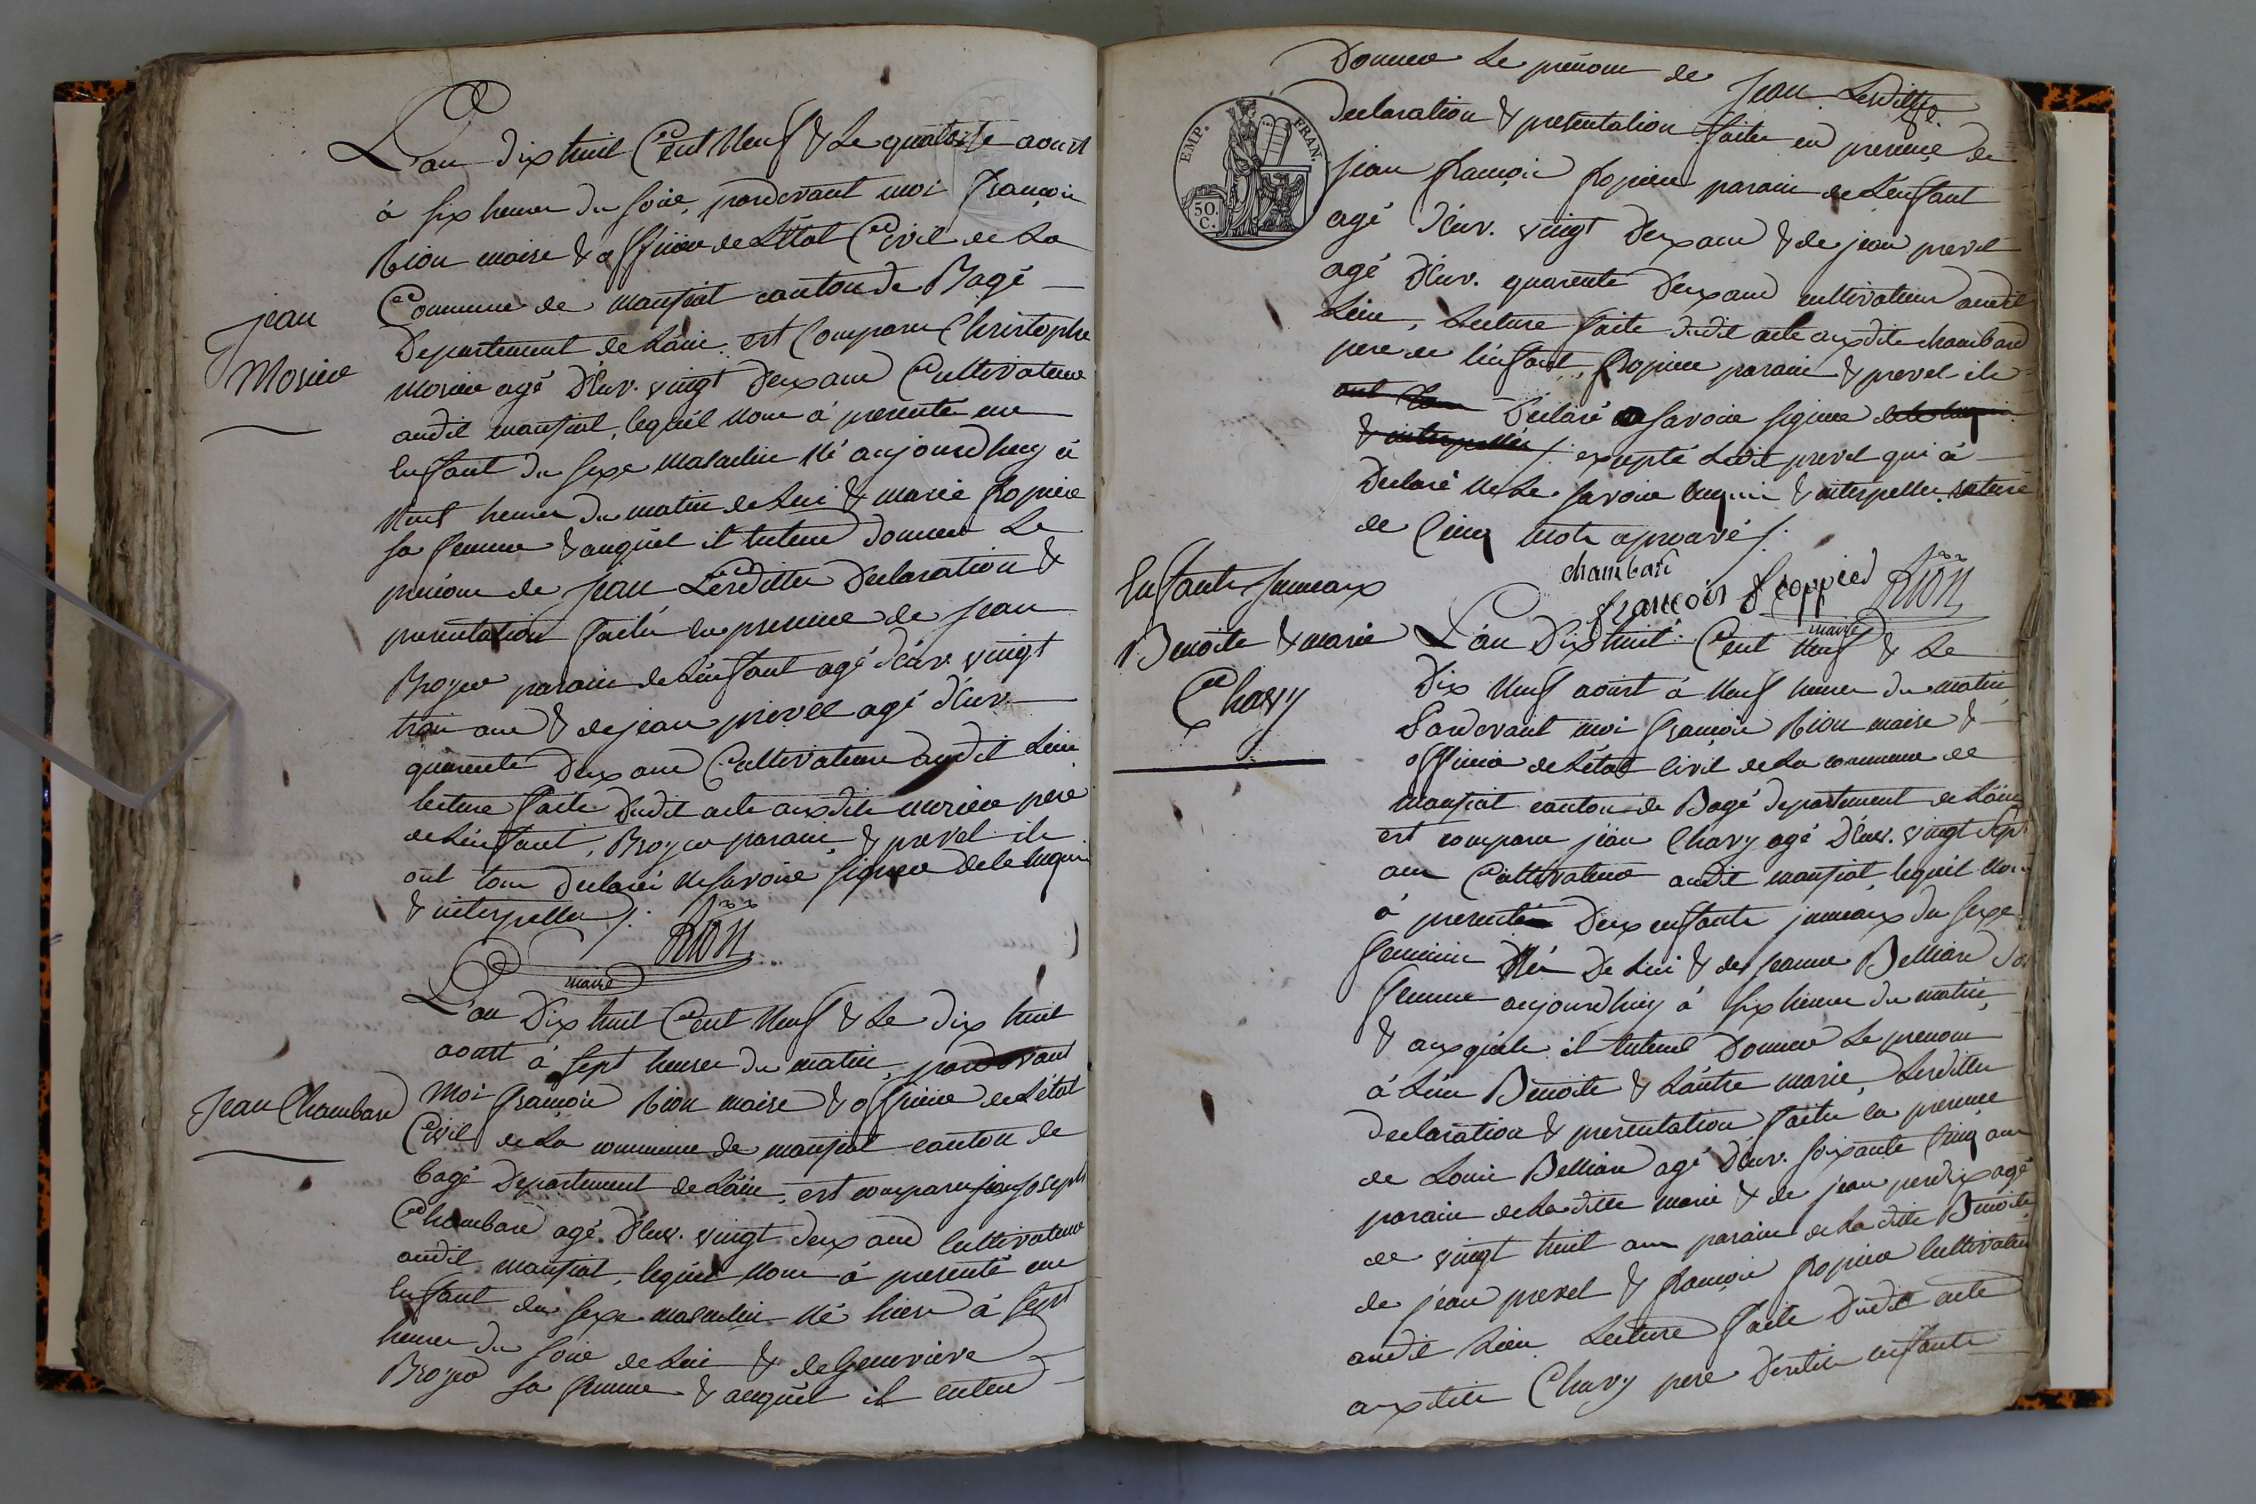 L'an dix huit Cent Neuf & Le quatorze aoust
à six heures du soir, pardevant moi françois
Rion maire & officier de L'état Civil de La
Commune de mansiat canton de Bagé
Departement de L'ain. est Comparu Christophe
Morier agé d'Env. vingt deux ans Cultivateur
audit mansiat, lequel nous à presenté un
Enfant du sexe Masculin Né aujourdhuy à
Neuf heures du matin de Lui & marie fropier
sa femme & auquel il entend donner Le
prénom de Jean Lesdittes Declaration &
presentation faites en presence de Jean
Broyer parain de L'enfant agé d'Env. vingt
trois ans & de jean prevel agé d'Env.
quarente deux ans Cultivateurs audit Lieu
lecture faite dudit acte auxdits morier pere
de L'enfant, Broyer parain & prevel ils
ont tous declarés ne savoir signer de ce enquis
& interpellés ./.
Rion
maire
jean
Morier
L'an Dix huit Cent Neuf & Le dix huit
aoust à sept heures du matin, pardevant
Moi françois Rion maire & officier de L'état
Civil de La commune de mansiat canton de
bagé Departement de L'ain, est comparu jean joseph
Chambard agé d'Env. vingt deux ans Cultivateur
audit mansiat, lequel nous à presenté un
Enfant du sexe masculin Né hier à sept
heures du soir de Lui & de Genevieve
Broyer sa femme & auquel il entend
Jean Chambard
Donner Le prénom de Jean Lesdittes
declaration & presentation faites en presence de
jean françois fropier parain de L'enfant
agé d'Env. vingt deux ans & de jean prevel
agé d'Env. quarente deux ans cultivateurs audit
Lieu, Lecture faite dudit acte auxdits chambard
pere de l'enfant, fropier parain & prevel ils
ont tous Déclaré savoir signer de ce enquis
& interpellés ./. excepté Ledit prevel qui à
Declaré ne Le savoir enquis & interpellé. rature
de Cinq mots aprouvés ./.
chambard
françois froppier
Rion
maire
EMP. FRAN.
50.
C.
Enfants jumeaux
Benoite & marie
Chavy
L'an Dix huit Cent Neuf & Le
Dix Neuf aoust à Neuf heures du matin
Pardevant moi françois Rion maire &
officier de L'état Civil de La commune de
mansiat canton de Bagé departement de L'ain
est comparu jean Chavy agé d'Env. vingt sept
ans Cultivateur audit mansiat, lequel nous
à presenté Deux enfants jumeaux du sexe
feminin Nés De Lui & de jeanne Bellian sa
femme aujourdhuy à six heures du matin,
& auxquels il entend Donner Le prenom
à L'un Benoite & L'autre marie, Lesdittes
declaration & presentation faites en presence
de Louis Bellian agé d'Env. soixante cinq ans
parain de La ditte marie & de jean perdrix agé
de vingt huit ans parain de La ditte Benoite
de jean prevel & françois fropier Cultivateurs
audit Lieu Lecture faite dudit acte
auxdits Chavy pere desdits enfants